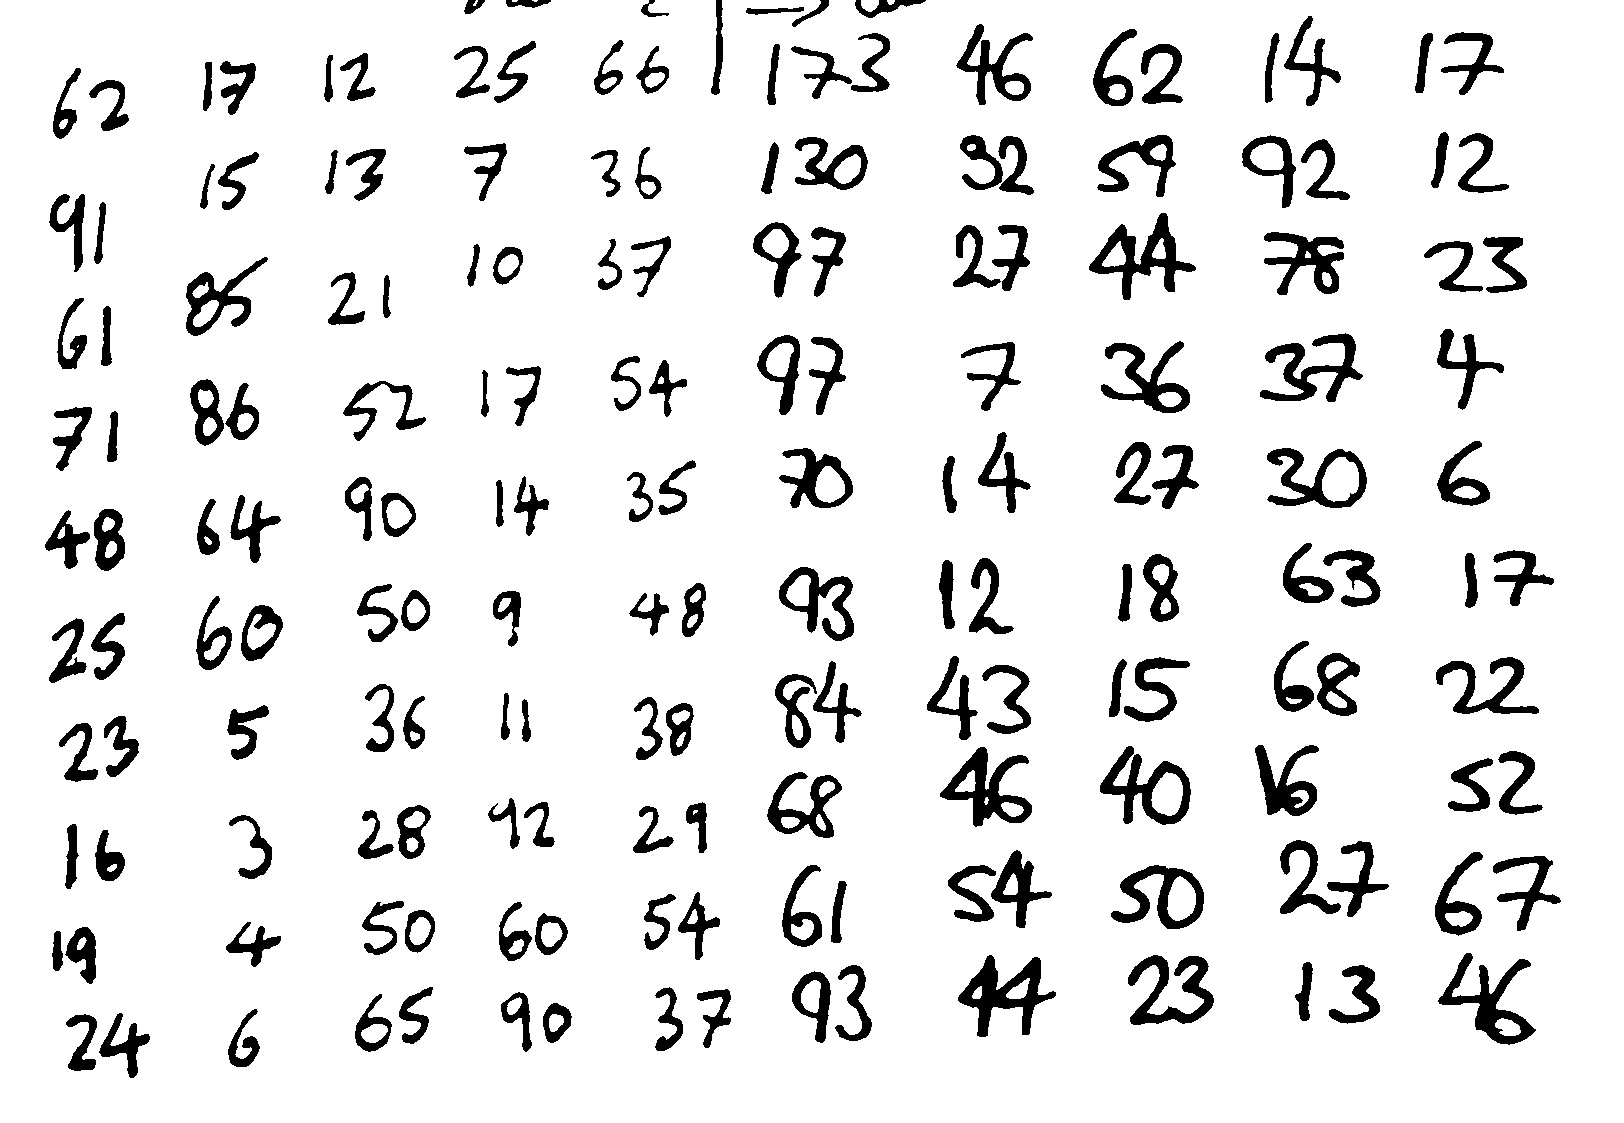 62 17 12 25 66 173 46 62 14 17
91 15 13 7 36 130 32 59 92 12
61 85 21 10 37 97 27 44 78 23
71 86 52 17 54 97 7 36 37 4
48 64 90 14 35 70 14 27 30 6
25 60 50 9 48 93 12 18 63 17
23 5 36 11 38 84 43 15 68 22
16 3 28 92 29 68 46 40 16 52
19 4 50 60 54 61 54 50 27 67
24 6 65 90 37 93 44 23 13 46